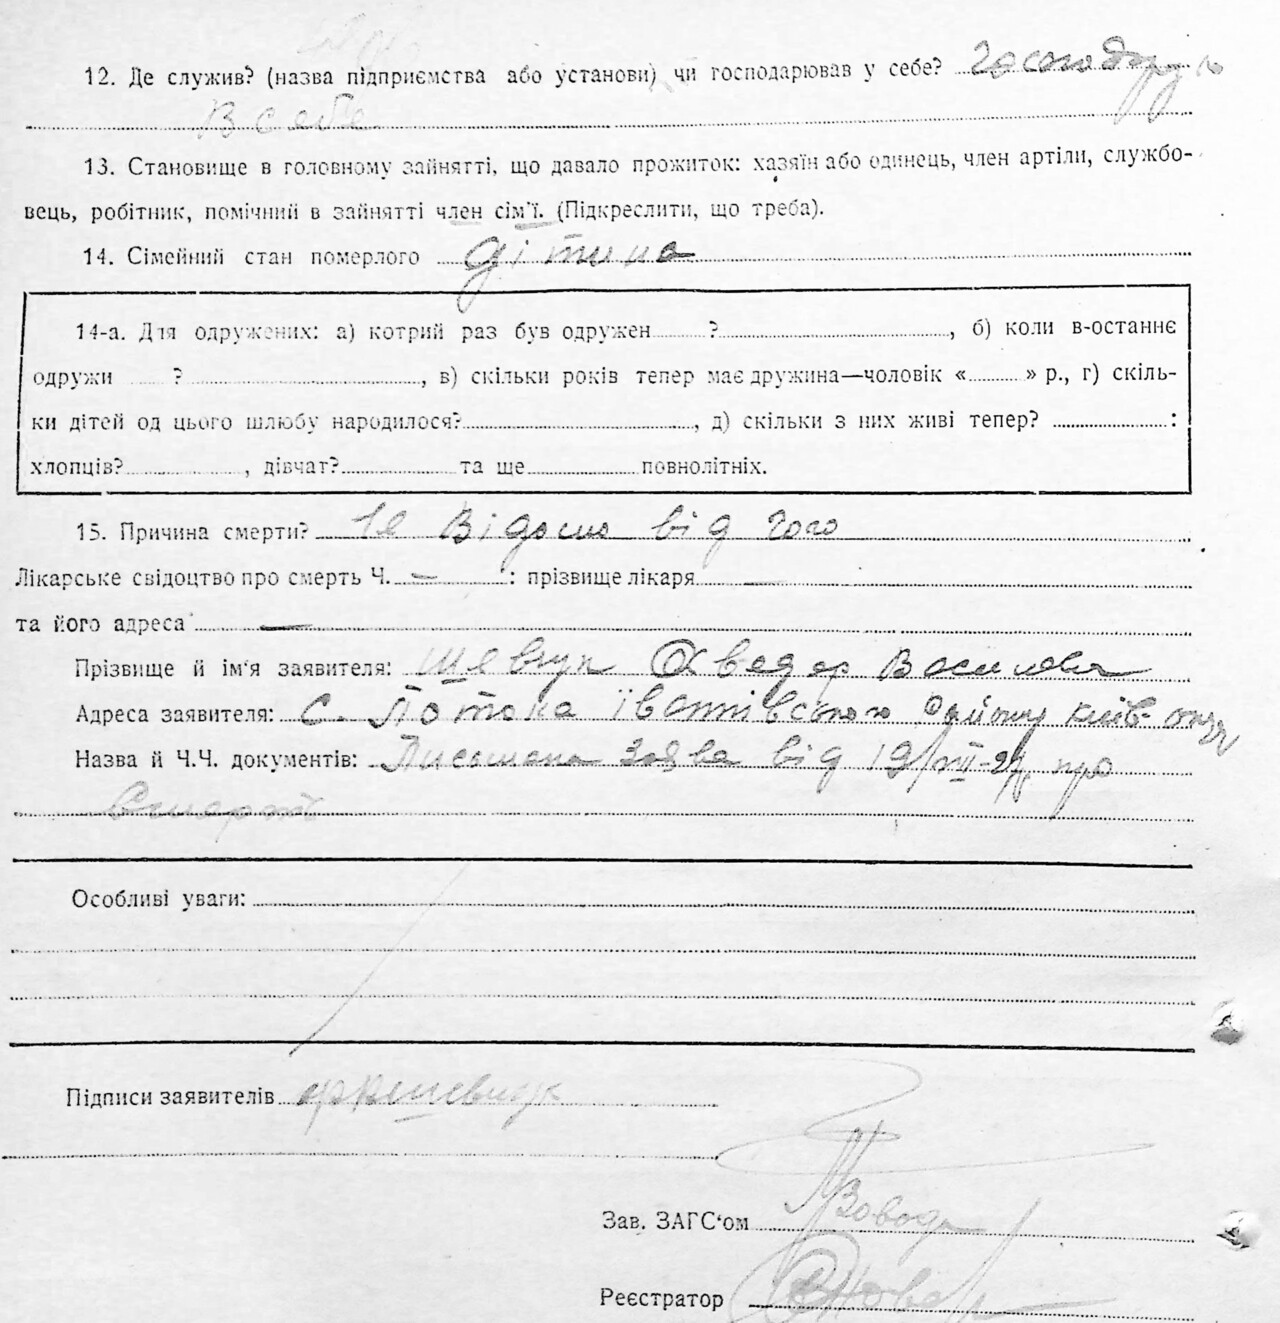 12. Де служив? (назва підприємства або установи) чи господарював у себе? господарує
В себе
13. Становище в головному зайнятті, що давало прожиток: хазяїн або одинець, член артіли, службо-
вець, робітник, помічний в зайнятті член сім'ї. (Підкреслити, що треба).
14. Сімейний стан померлого дітина
14-а. Для одружених: а) котрий раз був одружен ?, б) коли в-останнє
одружи ?, в) скільки років тепер має дружина—чоловік « » р., г) скіль-
ки дітей од цього шлюбу народилося?, д) скільки з них живі тепер? :
хлопців? , дівчат? та ще повнолітніх.
15. Причина смерти? Не Відомо від чого
Лікарське свідоцтво про смерть Ч. — : прізвище лікаря —
та його адреса —
Прізвище й ім'я заявителя: Шевчук Хведор Васильович
Адреса заявителя: С. Потока району Київ- окр
Назва й Ч.Ч. документів: Письмена заява від 19/VII-29 про
Смерть
Особливі уваги:
Підписи заявителів
Зав. ЗАГС'ом
Реєстратор